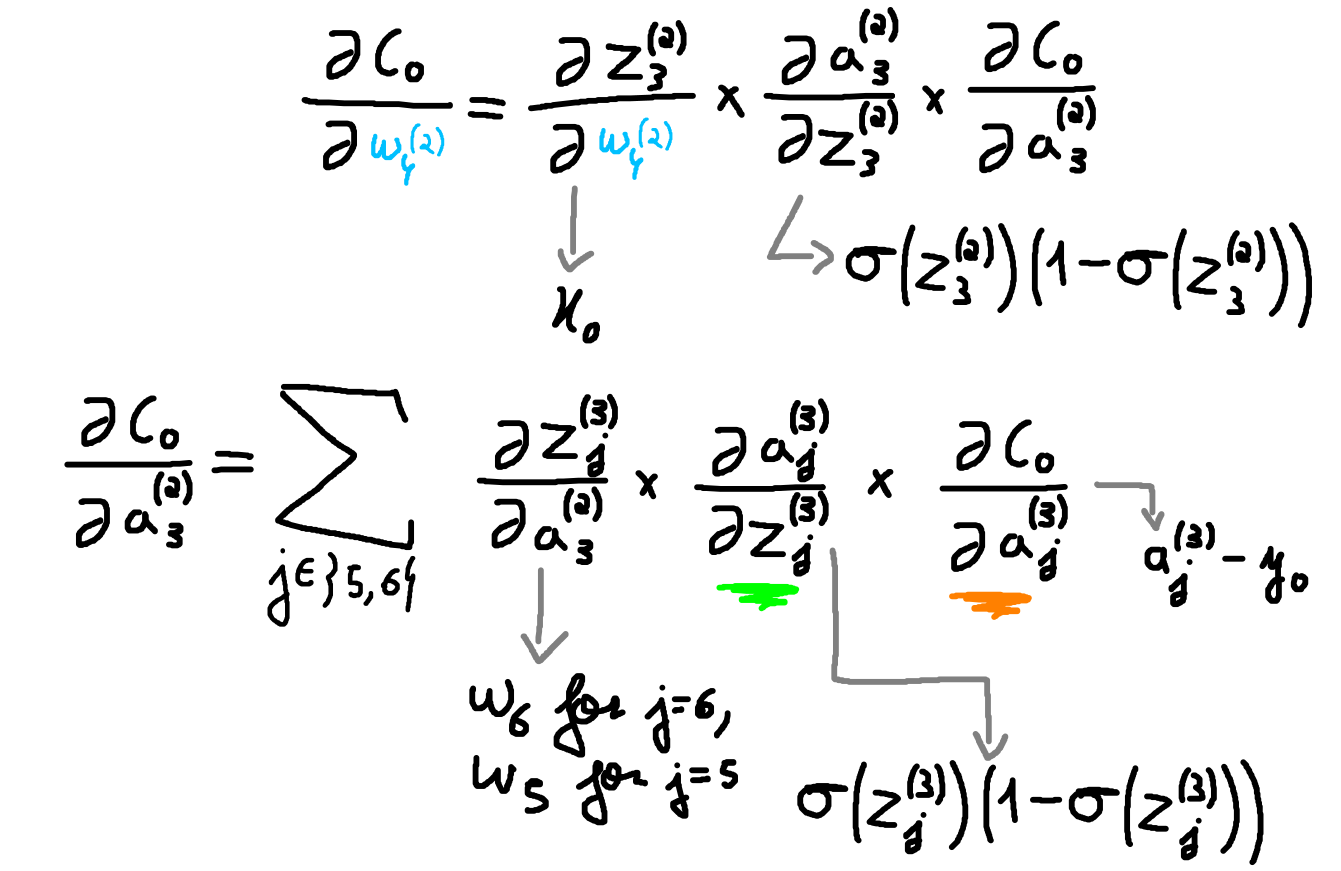 ∂C₀/∂w₄⁽²⁾ = ∂z₃⁽²⁾/∂w₄⁽²⁾ × ∂a₃⁽²⁾/∂z₃⁽²⁾ × ∂C₀/∂a₃⁽²⁾
x₀
σ(z₃⁽²⁾)(1-σ(z₃⁽²⁾))
∂C₀/∂a₃⁽²⁾ = ∑ j∈}5,6{ ∂zⱼ⁽³⁾/∂a₃⁽²⁾ × ∂aⱼ⁽³⁾/∂zⱼ⁽³⁾ × ∂C₀/∂aⱼ⁽³⁾
aⱼ⁽³⁾ - y₀
w₆ for j=6,
w₅ for j=5
σ(zⱼ⁽³⁾)(1-σ(zⱼ⁽³⁾))